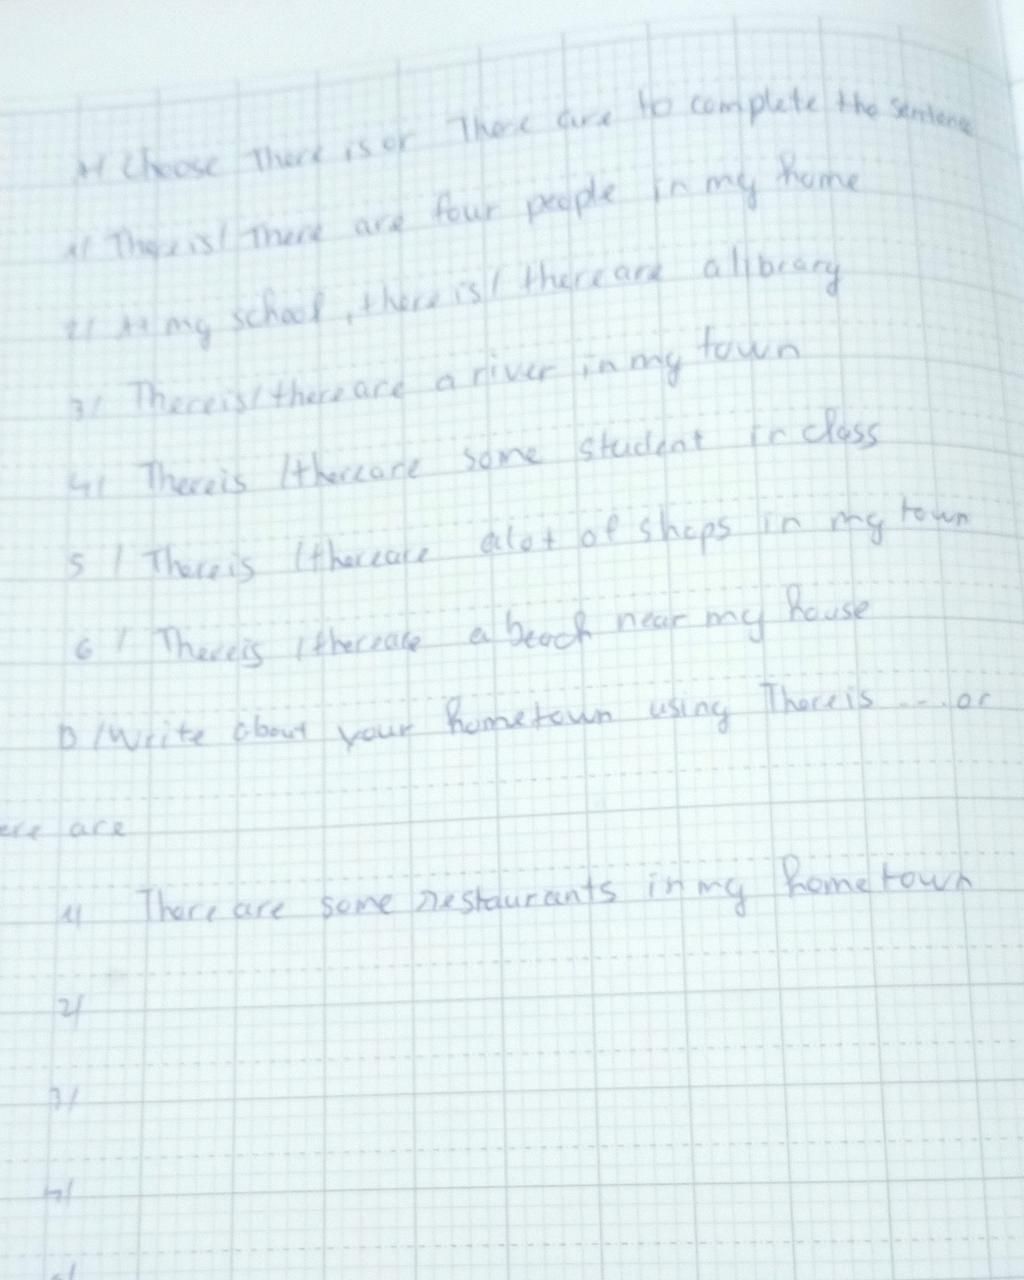 A/ Choose There is or There are to complete the sentence
1/ There is/ There are four people in my home
2/ At my school, there is/ there are a library
3/ There is/ there are a river in my town
4/ There is /there are some student in class
5/ There is /there are a lot of shops in my town
6/ There is /there are a beach near my house
D/Write about your hometown using There is ... or
ere are
1/ There are some restaurants in my hometown
2/
3/
4/